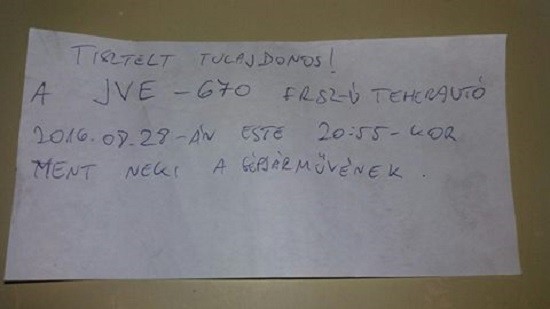 TISZTELT TULAJDONOS!
A JVE-670 FRSZ-Ú TEHERAUTÓ
2016.08.28-ÁN ESTE 20:55-KOR
MENT NEKI A GÉPJÁRMŰVÉNEK.